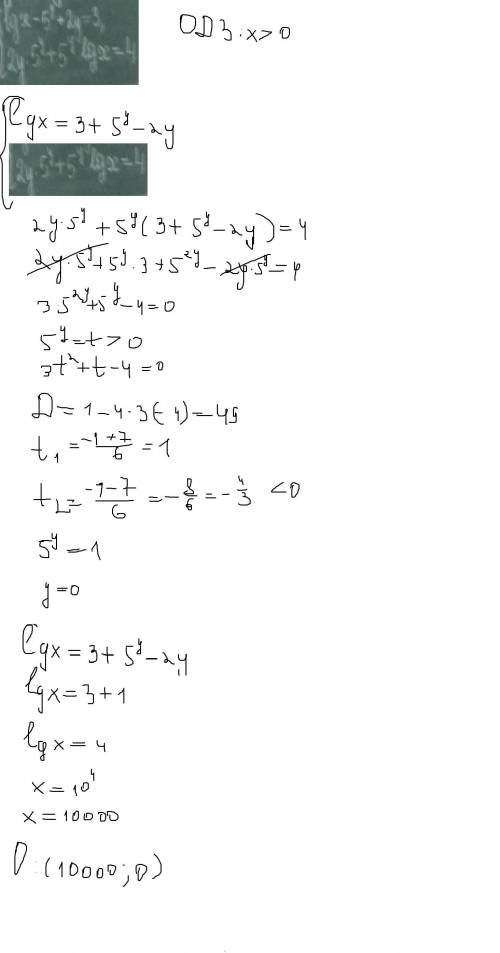 lgx-5^y+2y=3,
ОДЗ: x>0
2y·5^y+5^y lgx=4
lgx=3+5^y-2y
2y·5^y+5^y lgx=4
2y·5^y+5^y(3+5^y-2y)=4
2y·5^y+5^y·3+5^2y-2y·5^y=4
3 5^2y+5^y-4=0
5^y=t>0
3t²+t-4=0
D=1-4·3(-4)=49
t₁=-1+7/6=1
t₂=-1-7/6=-8/6=-4/3 <0
5^y=1
y=0
lgx=3+5^y-2y
lgx=3+1
lgx=4
x=10^4
x=10000
О:(10000;0)